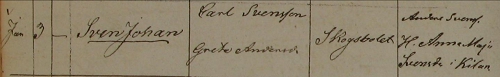 Jan 3 — Sven Johan
Carl Svensson
Greta Andersd
Skogsbolet
Anders Svens.
H. Anna Maja
Svensd. i Kilan